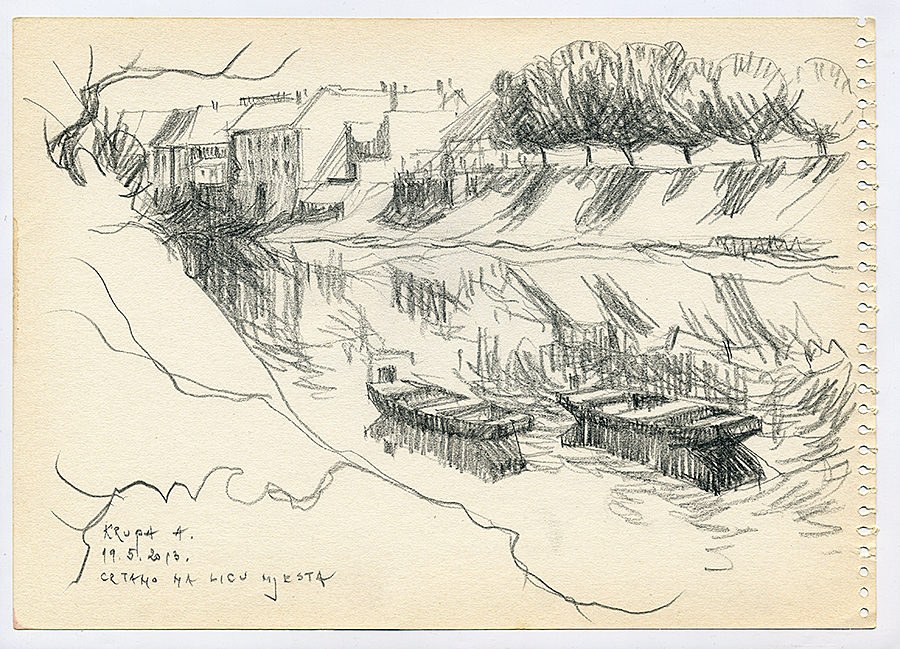 KRUPA A.
19.5.2013.
CRTAMO NA LICU MJESTA